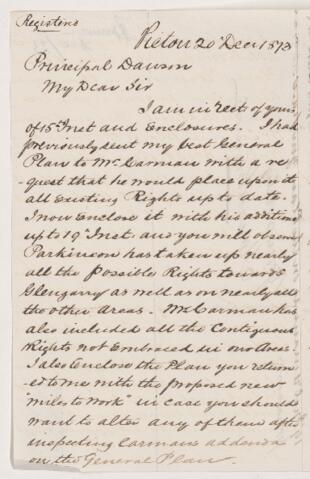 Registered
Pictou 20 Dec 1873
Principal Dawson
My Dear Sir
I am in rect of yours
of 15th Inst and Enclosures. I had
previously sent my best General
Plan to Mr Carman with a re-
-quest that he would place upon it
all Existing Rights up to date.
I now Enclose it with his additions
up to 19th Inst. and you will observe
Parkinson has taken up nearly
all the Possible Rights towards
Glengarry as well as on nearly all
the other Areas. Mr Carman has
also included all the Contiguous
Rights not Embraced in our Area.
I also Enclose the Plan you return
-ed to me with the proposed new
"miles to Work" in case you should
want to alter any of them after
inspecting Carmans addenda
on the General Plan.